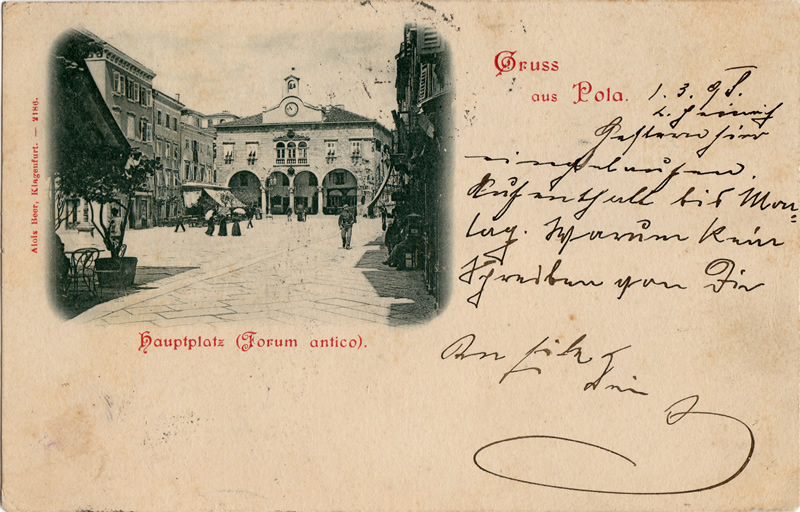 Gruss
aus Pola.
1. 3. 98.
L. Heinrich
Gestern hier
eingelaufen.
Aufenthalt bis Mon-
tag. Warum kein
Schreiben von Dir
Dein
Hauptplatz (Forum antico).
Alois Beer, Klagenfurt. — 2186.